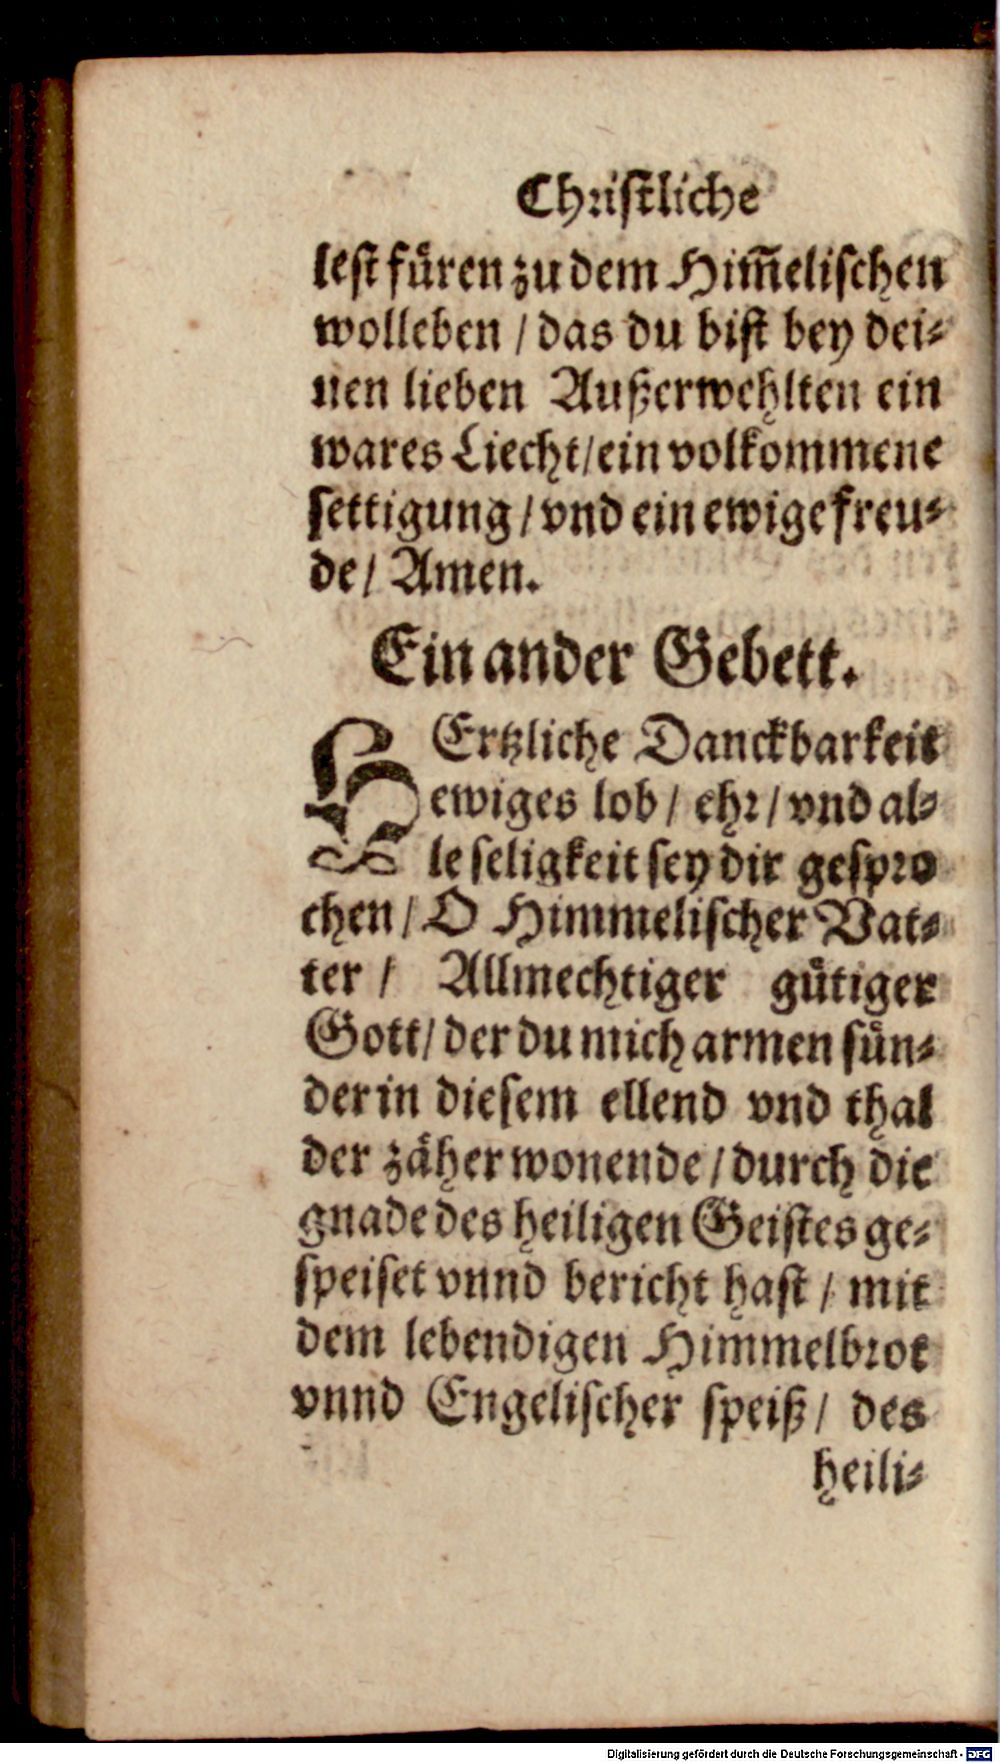 Christliche
lest fuͤren zu dem Him̃elischen
wolleben / das du bist bey dei-
nen lieben Außerwehlten ein
wares Liecht / ein volkommene
settigung / vnd ein ewige freu-
de / Amen.
Ein ander Gebett.
HErtzliche Danckbarkeit
ewiges lob / ehr / vnd al-
le seligkeit sey dir gespro
chen / O Himmelischer Vat-
ter / Allmechtiger guͤtiger
Gott / der du mich armen suͤn-
der in diesem ellend vnd thal
der zaͤher wonende / durch die
gnade des heiligen Geistes ge-
speiset vnnd bericht hast / mit
dem lebendigen Himmelbrot
vnnd Engelischer speiß / des
heili-
Digitalisierung gefördert durch die Deutsche Forschungsgemeinschaft - DFG